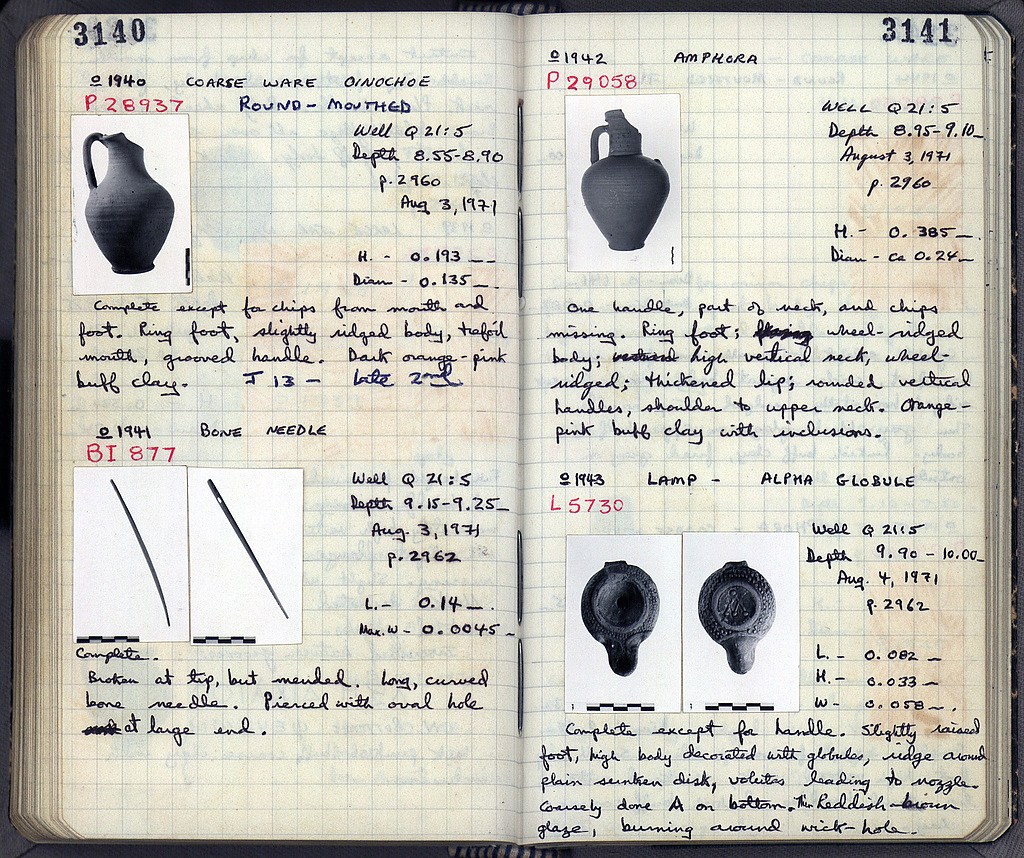 3140
o 1940 COARSE WARE OINOCHOE
P 28937 ROUND-MOUTHED
Well Q 21:5
Depth 8.55-8.90
p. 2960
Aug 3, 1971
H. - 0.193
Diam - 0.135
Complete except for chips from mouth and
foot. Ring foot, slightly ridged body, trefoil
mouth, grooved handle. Dark orange-pink
buff clay. J 13 - Late 2nd
o 1941 BONE NEEDLE
BI 877
Well Q 21:5
Depth 9.15-9.25
Aug. 3, 1971
p. 2962
L. - 0.14
Max. W - 0.0045
Complete.
Broken at tip, but mended. Long, curved
bone needle. Pierced with oval hole
at large end.
3141
o 1942 AMPHORA
P 29058
WELL Q 21:5
Depth 8.95-9.10
August 3, 1971
p. 2960
H. - 0.385
Diam - ca 0.24
One handle, part of neck, and chips
missing. Ring foot; wheel-ridged
body; high vertical neck, wheel-
ridged; thickened lip; rounded vertical
handles, shoulder to upper neck. Orange-
pink buff clay with inclusions.
o 1943 LAMP - ALPHA GLOBULE
L 5730
Well Q 21:5
Depth 9.90 - 10.00
Aug. 4, 1971
p. 2962
L. - 0.082
H. - 0.033
W - 0.058
Complete except for handle. Slightly raised
foot, high body decorated with globules, ridge around
plain sunken disk, volutes leading to nozzle.
Coarsely done A on bottom. Thin Reddish-brown
glaze, burning around wick-hole.